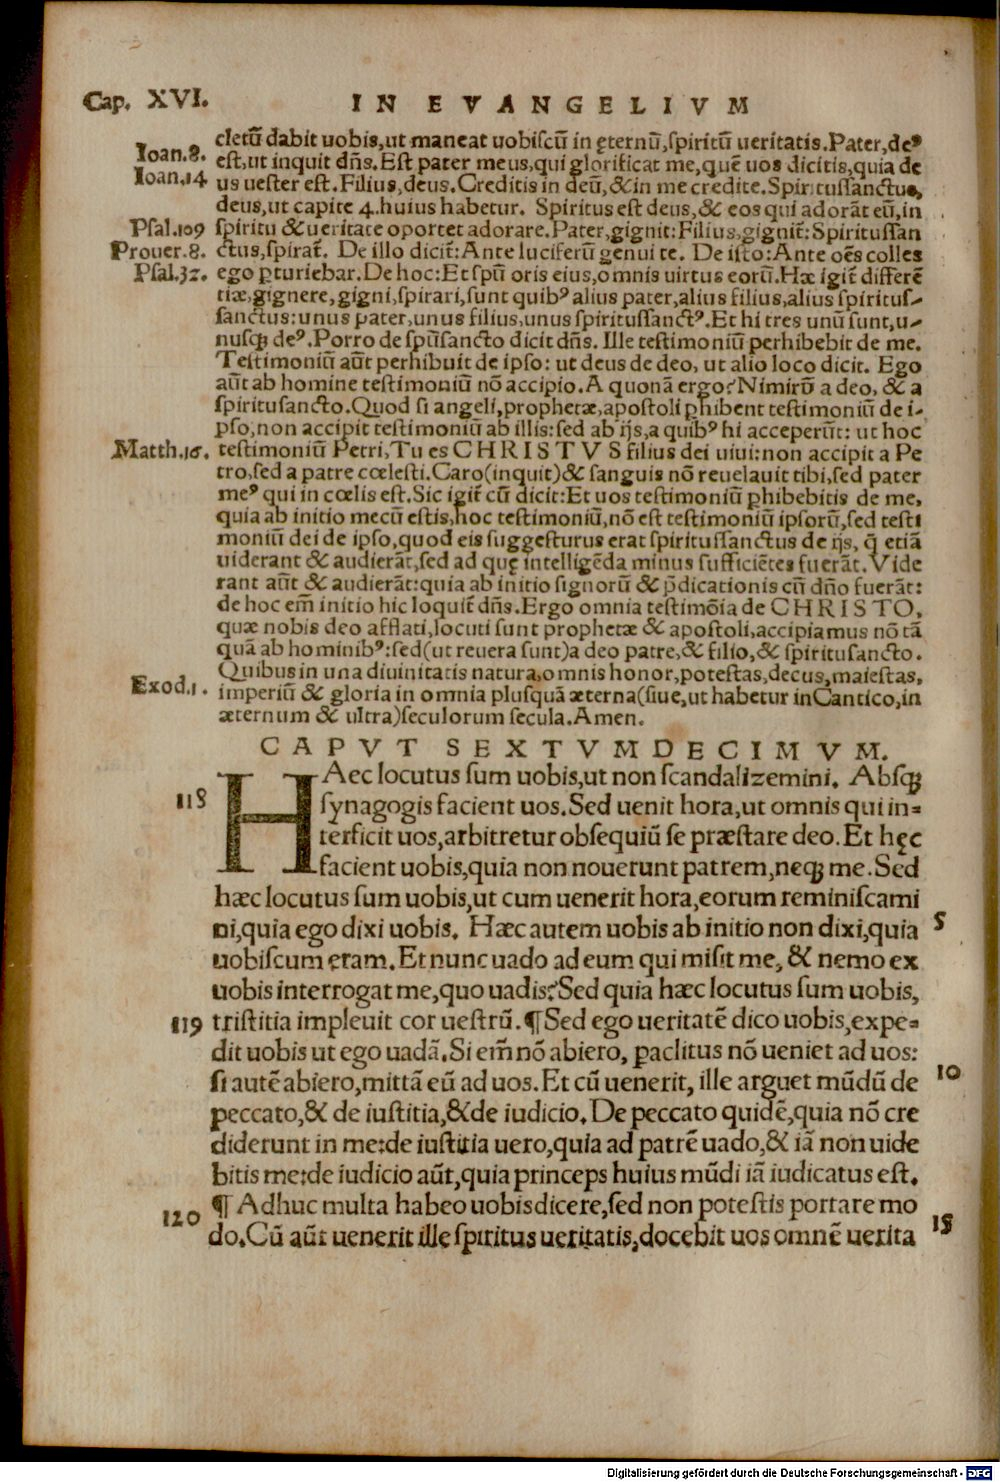 Cap. XVI. IN EVANGELIVM
cletũ dabit uobis,ut maneat uobiscũ in ęternũ,spiritũ ueritatis.Pater,deꝰ
Ioan.8. est,ut inquit dñs.Est pater meus,qui glorificat me,quẽ uos dicitis,quia de
Ioan.14 us uester est.Filius,deus.Creditis in deũ,&in me credite.Spiritussanctus,
deus,ut capite 4.huius habetur. Spiritus est deus,& eos qui adorãt eũ,in
Psal.109 spiritu & ueritate oportet adorare.Pater,gignit:Filius,gignit̃:Spiritussan
Prouer.8. ctus,spirat̃. De illo dicit̃:Ante luciferũ genui te. De isto:Ante oẽs colles
Psal.32. ego ꝑturiebar.De hoc:Et spũ oris eius,omnis uirtus eorũ.Hæ igit̃ differẽ
tiæ,gignere,gigni,spirari,sunt quibꝰ alius pater,alius filius,alius spiritus-
sanctus:unus pater,unus filius,unus spiritussanctꝰ.Et hi tres unũ sunt,u-
nusq́ꝫ deꝰ.Porro de spũsancto dicit dñs. Ille testimoniũ perhibebit de me.
Testimoniũ aũt perhibuit de ipso: ut deus de deo, ut alio loco dicit. Ego
aũt ab homine testimoniũ nõ accipio.A quonã ergo?Nimirũ a deo, & a
spiritusancto.Quod si angeli,prophetæ,apostoli ꝑhibent testimoniũ de i-
pso,non accipit testimoniũ ab illis:sed ab ijs,a quibꝰ hi acceperũt: ut hoc
Matth.16. testimoniũ Petri,Tu es CHRISTVS filius dei uiui:non accipit a Pe
tro,sed a patre cœlesti.Caro(inquit)& sanguis nõ reuelauit tibi,sed pater
meꝰ qui in cœlis est.Sic igit̃ cũ dicit:Et uos testimoniũ ꝑhibebitis de me,
quia ab initio mecũ estis,hoc testimoniũ,nõ est testimoniũ ipsorũ,sed testi
moniũ dei de ipso,quod eis suggesturus erat spiritussanctus de ijs, q̃ etiã
uiderant & audierãt,sed ad quę intelligẽda minus sufficiẽtes fuerãt.Vide
rant aũt & audierãt:quia ab initio signorũ & p̃dicationis cũ dño fuerãt:
de hoc em̃ initio hic loquit̃ dñs.Ergo omnia testimõia de CHRISTO,
quæ nobis deo afflati,locuti sunt prophetæ & apostoli,accipiamus nõ tã
quã ab hominibꝰ:sed(ut reuera sunt)a deo patre,& filio,& spiritusancto.
Quibus in una diuinitatis natura,omnis honor,potestas,decus,maiestas,
Exod.1. imperiũ & gloria in omnia plusquã æterna(siue,ut habetur inCantico,in
æternum & ultra)seculorum secula.Amen.
CAPVT SEXTVMDECIMVM.
HAec locutus sum uobis,ut non scandalizemini. Absqꝫ
118 synagogis facient uos.Sed uenit hora,ut omnis qui in=
terficit uos,arbitretur obsequiũ se præstare deo.Et hęc
facient uobis,quia non nouerunt patrem,neqꝫ me.Sed
hæc locutus sum uobis,ut cum uenerit hora,eorum reminiscami
ni,quia ego dixi uobis. Hæc autem uobis ab initio non dixi,quia 5
uobiscum eram.Et nunc uado ad eum qui misit me, & nemo ex
uobis interrogat me,quo uadis?Sed quia hæc locutus sum uobis,
119 tristitia impleuit cor uestrũ.¶Sed ego ueritatẽ dico uobis,expe=
dit uobis ut ego uadã.Si em̃ nõ abiero, paclitus nõ ueniet ad uos:
si autẽ abiero,mittã eũ ad uos.Et cũ uenerit, ille arguet mũdũ de 10
peccato,& de iustitia,&de iudicio.De peccato quidẽ,quia nõ cre
diderunt in me:de iustitia uero,quia ad patrẽ uado,& iã non uide
bitis me:de iudicio aũt,quia princeps huius mũdi iã iudicatus est.
120 ¶ Adhuc multa habeo uobis dicere,sed non potestis portare mo
do.Cũ aũt uenerit ille spiritus ueritatis,docebit uos omnẽ uerita 15
Digitalisierung gefördert durch die Deutsche Forschungsgemeinschaft - DFG